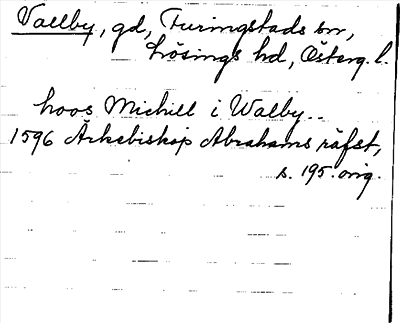 Vallby, gd, Furingstads sn,
Lösings hd, Österg. l.
hoos Michill i Walby..
1596 Ärkebiskop Abrahams räfst,
s. 195. orig.